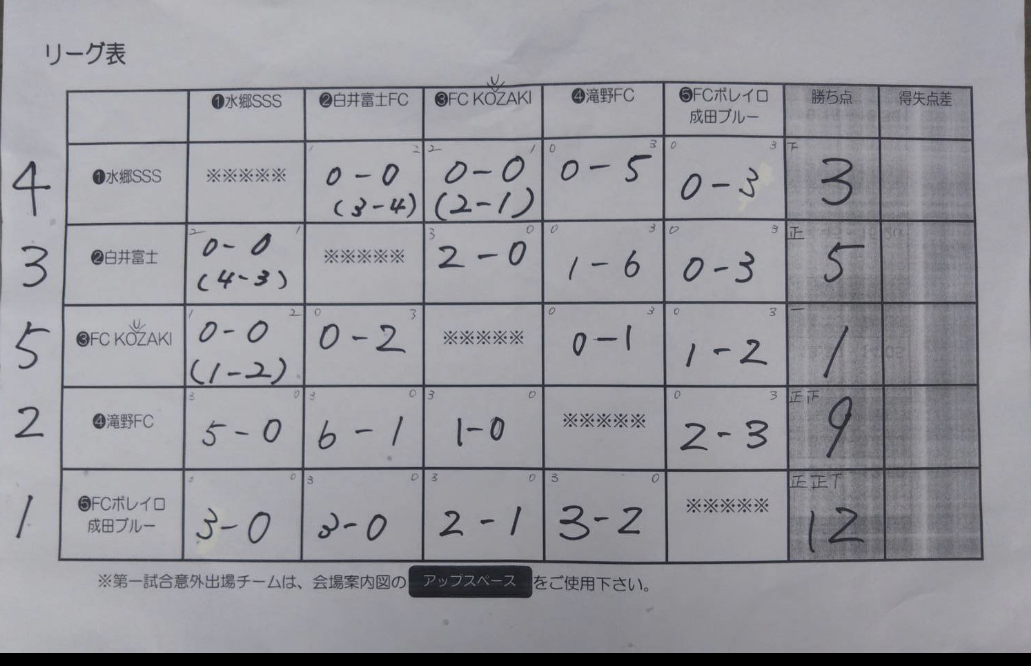 リーグ表
❶水郷SSS ❷白井富士FC ❸FC KOZAKI ❹滝野FC ❺FCボレイロ成田ブルー 勝ち点 得失点差
4 ❶水郷SSS ※※※※※ 1 2 0-0 (3-4) 2 1 0-0 (2-1) 0 3 0-5 0 3 0-3 下 3
3 ❷白井富士 2 1 0-0 (4-3) ※※※※※ 3 0 2-0 0 3 1-6 0 3 0-3 正 5
5 ❸FC KOZAKI 1 2 0-0 (1-2) 0 3 0-2 ※※※※※ 0 3 0-1 0 3 1-2 一 1
2 ❹滝野FC 3 0 5-0 3 0 6-1 3 0 1-0 ※※※※※ 0 3 2-3 正正 9
1 ❺FCボレイロ成田ブルー 0 3-0 3 0 3-0 3 0 2-1 3 0 3-2 ※※※※※ 正正T 12
※第一試合意外出場チームは、会場案内図の アップスペース をご使用下さい。